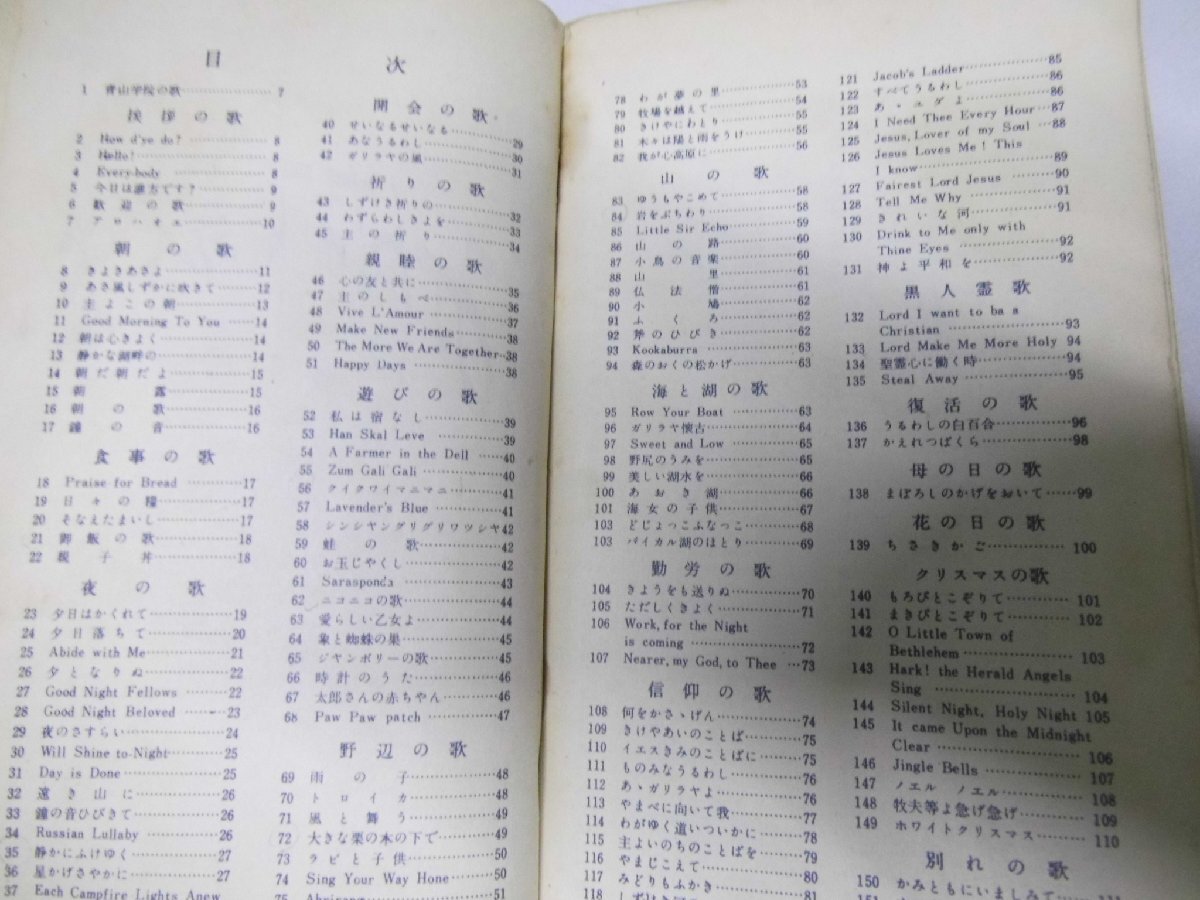 目次
1 青山学院の歌 7
挨拶の歌
2 How d'ye do? 8
3 Hello! 8
4 Every-body 8
5 今日は誰方です? 9
6 歓迎の歌 9
7 アロハオエ 10
朝の歌
8 きよきあさよ 11
9 あさ風しずかに吹きて 12
10 主よこの朝 13
11 Good Morning To You 14
12 朝は心きよく 14
13 静かな湖畔の 14
14 朝だ朝だよ 15
15 朝露 15
16 朝の歌 16
17 鐘の音 16
食事の歌
18 Praise for Bread 17
19 日々の糧 17
20 そなえたまいし 17
21 御飯の歌 18
22 親子丼 18
夜の歌
23 夕日はかくれて 19
24 夕日落ちて 20
25 Abide with Me 21
26 夕となりぬ 22
27 Good Night Fellows 22
28 Good Night Beloved 23
29 夜のさすらい 24
30 Will Shine to-Night 25
31 Day is Done 25
32 遠き山に 26
33 鐘の音ひびきて 26
34 Russian Lullaby 26
35 静かにふけゆく 27
36 星かげさやかに 27
37 Each Campfire Lights Anew
開会の歌
40 せいなるせいなる 29
41 あなうるわし 30
42 ガリラヤの風 31
祈りの歌
43 しずけき祈りの 32
44 わずらわしきよを 33
45 主の祈り 34
親睦の歌
46 心の友と共に 35
47 主のしもべ 36
48 Vive L'Amour 37
49 Make New Friends 38
50 The More We Are Together 38
51 Happy Days 38
遊びの歌
52 私は宿なし 39
53 Han Skal Leve 39
54 A Farmer in the Dell 40
55 Zum Gali Gali 40
56 クイクワイマニマニ 41
57 Lavender's Blue 41
58 シンシヤングリグリワツシヤ 42
59 蛙の歌 42
60 お玉じやくし 42
61 Sarasponda 43
62 ニコニコの歌 44
63 愛らしい乙女よ 44
64 象と蜘蛛の巣 45
65 ジヤンボリーの歌 45
66 時計のうた 46
67 太郎さんの赤ちやん 46
68 Paw Paw patch 47
野辺の歌
69 雨の子 48
70 トロイカ 48
71 風と舞う 49
72 大きな栗の木の下で 50
73 ラビと子供 50
74 Sing Your Way Hone 50
75 Abrirang 51
78 わが夢の里 53
79 牧場を越えて 54
80 きけやにわとり 55
81 木々は陽と雨をうけ 55
82 我が心高原に 56
山の歌
83 ゆうもやこめて 58
84 岩をぶちわり 58
85 Little Sir Echo 59
86 山の路 60
87 小鳥の音楽 60
88 山里 61
89 仏法僧 61
90 小鳩 62
91 ふくろ 62
92 斧のひびき 62
93 Kookaburra 63
94 森のおくの松かげ 63
海と湖の歌
95 Row Your Boat 63
96 ガリラヤ懐古 64
97 Sweet and Low 65
98 野尻のうみを 65
99 美しい湖水を 66
100 あおき湖 66
101 海女の子供 67
103 どじょっこふなっこ 68
103 バイカル湖のほとり 69
勤労の歌
104 きようをも送りぬ 70
105 ただしくきよく 71
106 Work, for the Night
is coming 72
107 Nearer, my God, to Thee 73
信仰の歌
108 何をかさゝげん 74
109 きけやあいのことば 75
110 イエスきみのことばに 75
111 ものみなうるわし 76
112 あゝガリラヤよ 76
113 やまべに向いて我 77
114 わがゆく道いついかに 78
115 主よいのちのことばを 79
116 やまじこえて 80
117 みどりもふかき 81
118
121 Jacob's Ladder 85
122 すべてうるわし 86
123 あゝユダよ 86
124 I Need Thee Every Hour 87
125 Jesus, Lover of my Soul 88
126 Jesus Loves Me! This
I know 89
127 Fairest Lord Jesus 90
128 Tell Me Why 91
129 きれいな河 91
130 Drink to Me only with
Thine Eyes 92
131 神よ平和を 92
黒人霊歌
132 Lord I want to be a
Christian 93
133 Lord Make Me More Holy 94
134 聖霊心に働く時 94
135 Steal Away 95
復活の歌
136 うるわしの白百合 96
137 かえれつばくら 98
母の日の歌
138 まぼろしのかげをおいて 99
花の日の歌
139 ちさきかご 100
クリスマスの歌
140 もろびとこぞりて 101
141 まきびとこぞりて 102
142 O Little Town of
Bethlehem 103
143 Hark! the Herald Angels
Sing 104
144 Silent Night, Holy Night 105
145 It came Upon the Midnight
Clear 106
146 Jingle Bells 107
147 ノエル ノエル 108
148 牧夫等よ急げ急げ 109
149 ホワイトクリスマス 110
別れの歌
150 かみともにいましみて
151